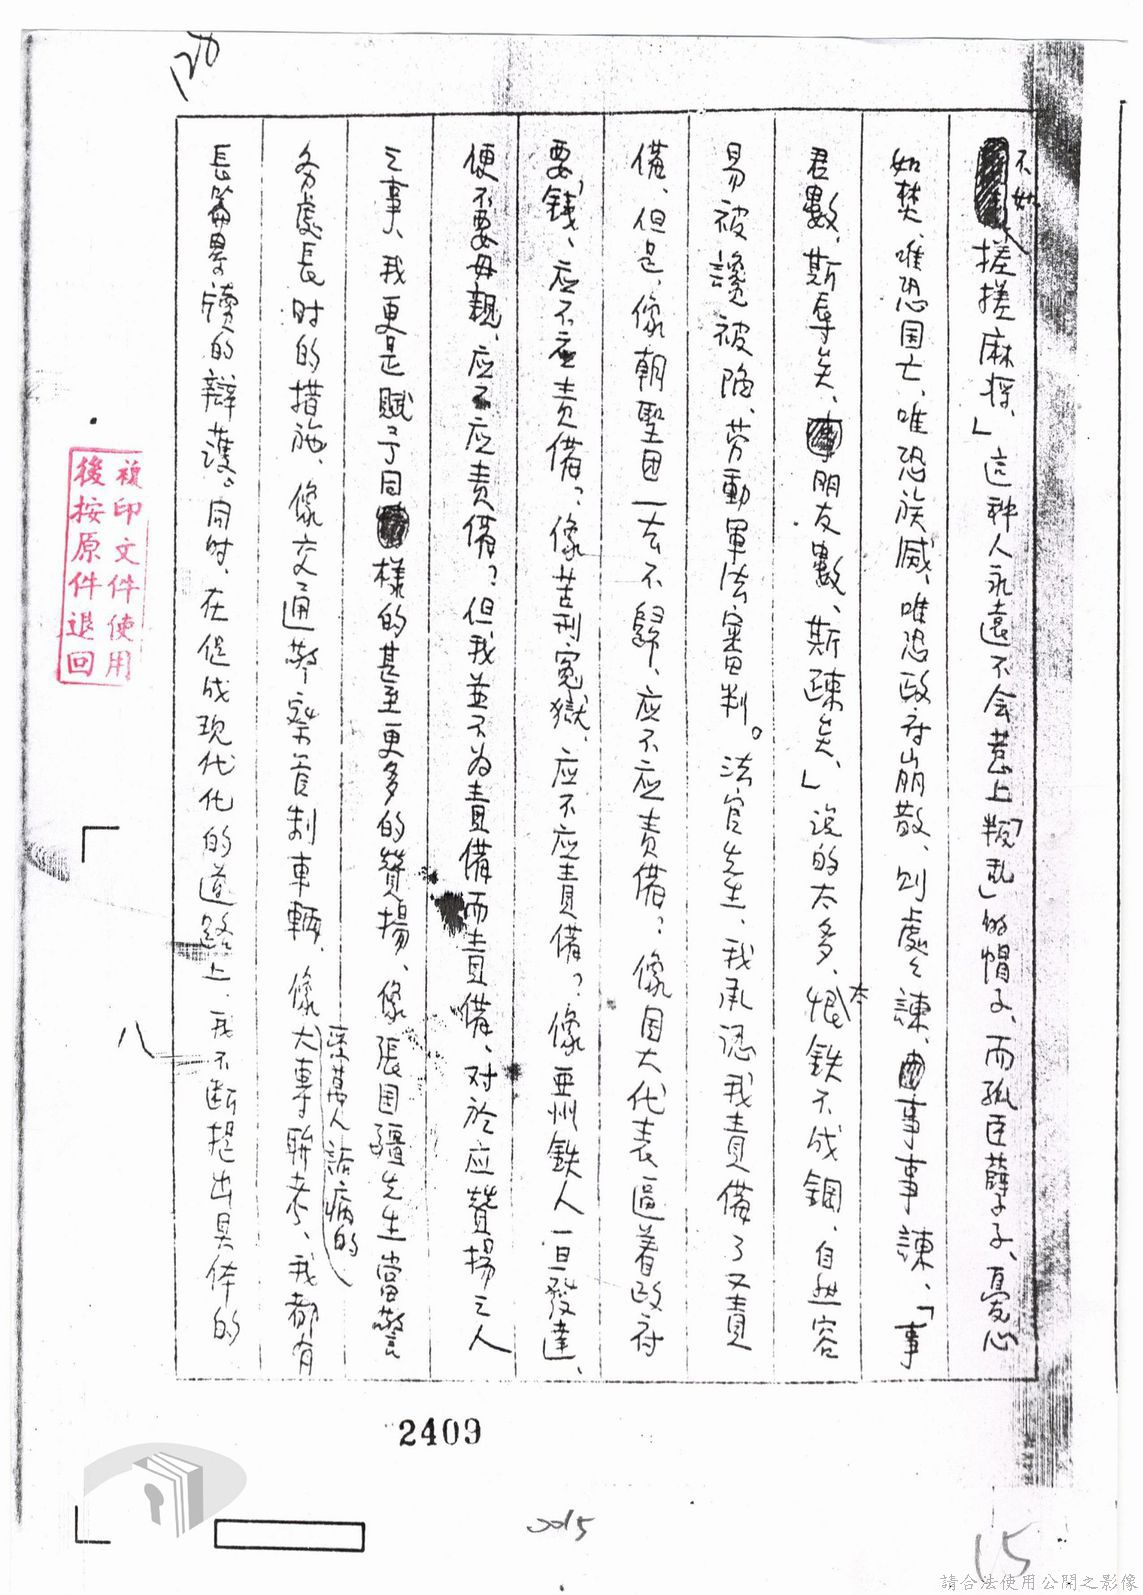 不如搓搓麻將、」這种人永遠不会惹上「叛乱」的帽子、而孤臣孽子、憂心
如焚、唯恐国亡、唯恐族滅、唯恐政府崩散、則處處諫、事事諫、「事
君數、斯辱矣、朋友數、斯疎矣、」说的太多、恨鉄不成鋼、自然容
太
易被讒被陷、劳動軍法審判。法官先生、我承認我責備了又責
備、但是、像朝聖团一去不歸、应不应責備？、像国大代表逼着政府
要錢、应不应責備？、像苦刑冤獄、应不应責備？、像亜州鉄人一旦發達、
便不要母親、应不应責備？、但我並不为責備而責備、对於应贊揚之人
之事、我更是賦予同樣的甚至更多的贊揚、像張国疆先生當警
务處長时的措施、像交通警察管制車輛、像大專聯考、我都有
受萬人詬病的
長篇累牘的辯護。同时、在促成现代化的道路上、我不断提出具体的
複印文件使用
後按原件退回
八
2409
0015
15
請合法使用公開之影像